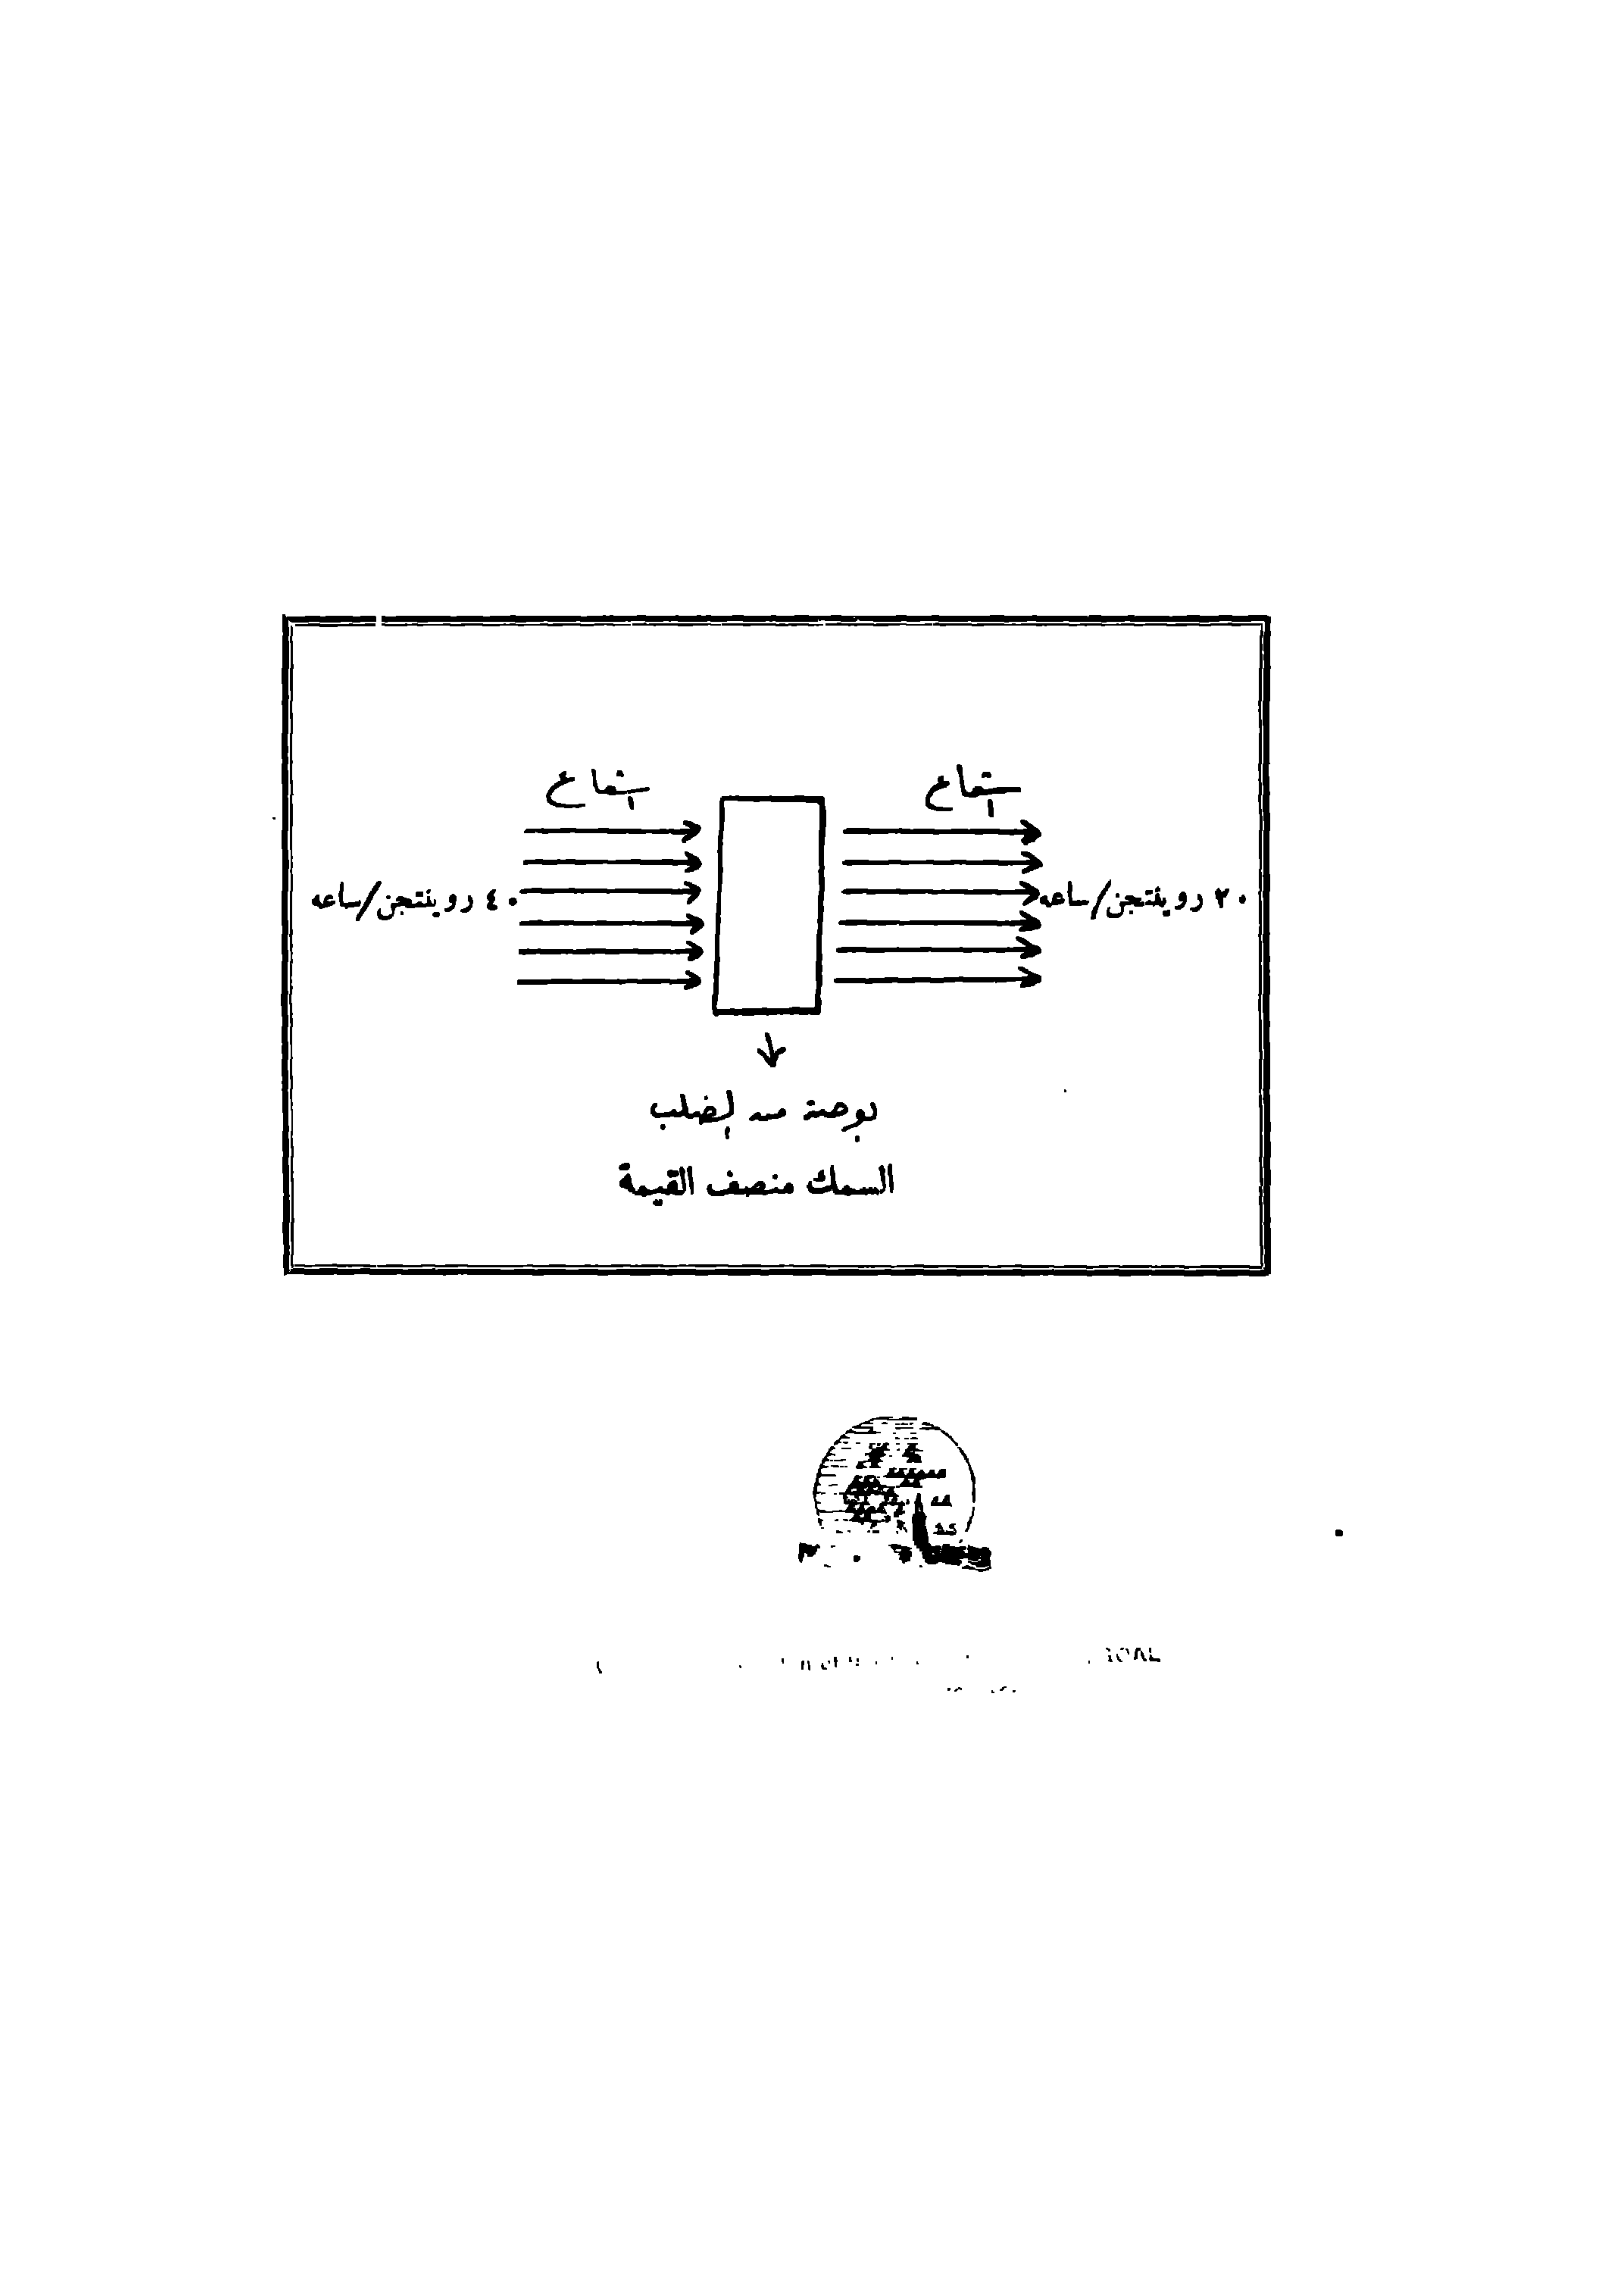 اشعاع
اشعاع
٤٠ روينتجن/ساعه
٢٠ روينتجن/ساعه
بوصة من الصلب
السمك منصف القيمة